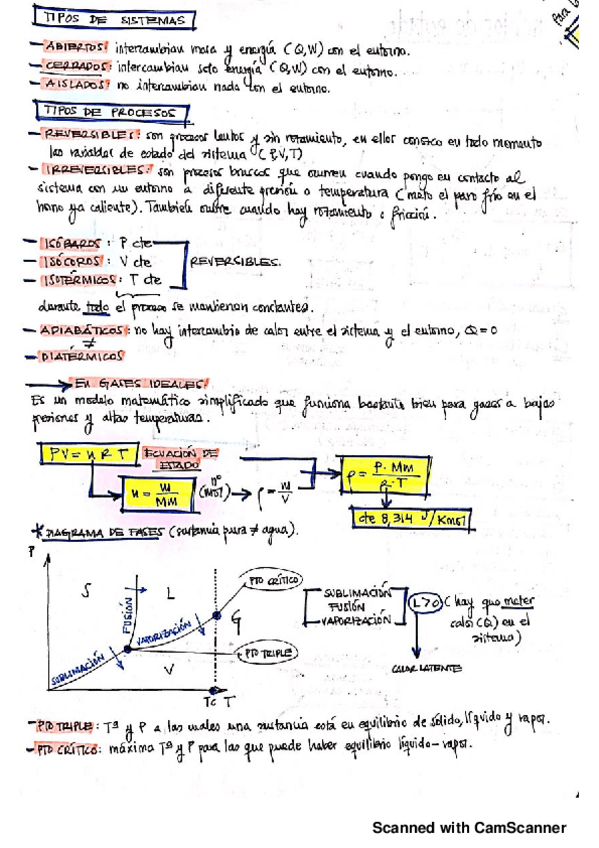 TIPOS DE SISTEMAS
Para
- ABIERTOS: intercambian masa y energía (Q,W) con el entorno.
- CERRADOS: intercambian solo energía (Q,W) con el entorno.
- AISLADOS: no intercambian nada con el entorno.
TIPOS DE PROCESOS
- REVERSIBLES: son procesos lentos y sin rozamiento, en ellos conozco en todo momento
las variables de estado del sistema (P,V,T)
- IRREVERSIBLES: son procesos bruscos que ocurren cuando pongo en contacto al
sistema con un entorno a diferente presión o temperatura (meto el pavo frío en el
horno ya caliente). También ocurre cuando hay rozamiento o fricción.
- ISÓBAROS: P cte
- ISÓCOROS: V cte REVERSIBLES.
- ISOTÉRMICOS: T cte
durante todo el proceso se mantienen constantes.
- ADIABÁTICOS: no hay intercambio de calor entre el sistema y el entorno, Q=0
≠
- DIATÉRMICOS
→ EN GASES IDEALES:
Es un modelo matemático simplificado que funciona bastante bien para gases a bajas
presiones y altas temperaturas.
PV = n R T ECUACIÓN DE ESTADO
n = m/Mm (nº mol) → ρ = m/V
ρ = P·Mm/R·T
cte 8,314 J/Kmol
* DIAGRAMA DE FASES (sustancia pura ≠ agua).
P
S
L
G
V
FUSIÓN
VAPORIZACIÓN
SUBLIMACIÓN
PTO CRÍTICO
PTO TRIPLE
Tc T
SUBLIMACIÓN
FUSIÓN
VAPORIZACIÓN
L>0 (hay que meter
calor (Q) en el
sistema)
CALOR LATENTE
- PTO TRIPLE: Tª y P a las cuales una sustancia está en equilibrio de sólido, líquido y vapor.
- PTO CRÍTICO: máxima Tª y P para las que puede haber equilibrio líquido-vapor.
Scanned with CamScanner